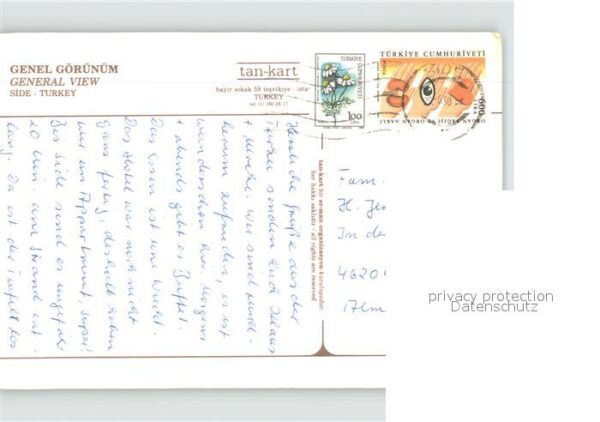 GENEL GÖRÜNÜM
GENERAL VIEW
SIDE - TURKEY
tan-kart
bayır sokak 58 teşvikiye - istanbul
TURKEY
TÜRKİYE CUMHURİYETİ
100
TÜRKİYE CUMHURİYETİ
POSTA
600
tan-kart bir erman organizasyon kuruluşudur
her hakkı saklıdır / all rights are reserved
Herzliche Grüße aus der
Türkei senden Euch
zufrieden, es ist
wunderschön hier. Morgens
+ abends gibt es Buffet.
Das Essen ist eine Wucht.
Das Hotel war noch nicht
ganz fertig, deshalb haben
wir ein Appartment, super!
Bis Side sind es ungefähr
20 Min. am Strand ent-
lang. Da ist der los
Fam.
H.
In de
4620
privacy protection
Datenschutz